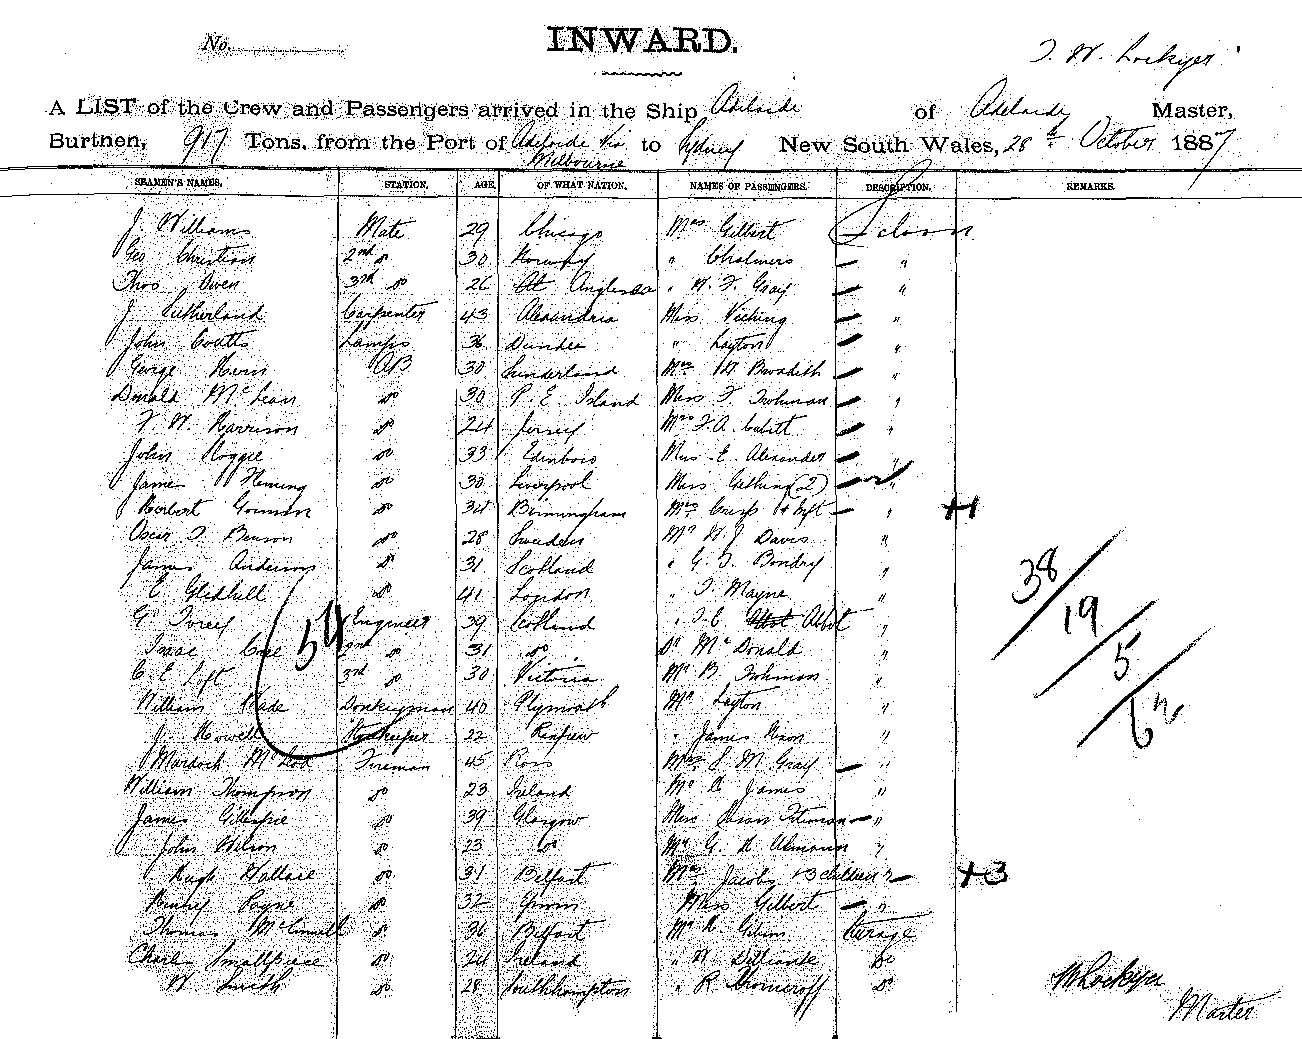 No.
INWARD.
T. W. Lockyer
A LIST of the Crew and Passengers arrived in the Ship Adelaide of Adelaide Master,
Burthen, 917 Tons, from the Port of Adelaide Via Melbourne to Sydney New South Wales, 28th October 1887
SEAMEN'S NAMES, STATION, AGE, OF WHAT NATION, NAMES OF PASSENGERS. DESCRIPTION. REMARKS.
J. Williams Mate 29 Chicago Mrs Gilbert Saloon
Geo Christian 2nd do 30 Norway " Chalmers "
Thos Owen 3rd do 26 Anglesea " W. F. Gray "
J Sutherland Carpenter 43 Alexandria Miss "
John Coutts Lamps 36 Dundee " Layton "
George Kern AB 30 Sunderland Mrs "
Donald McLean do 30 P. E. Island Miss F. Frohman "
F. W. Harrison do 24 Jersey Mrs F. A. "
John Hoggie do 33 Edinboro Miss E. Alexander "
James Fleming do 30 Liverpool Miss (2) "
Herbert Gorman do 34 Birmingham Mrs Crisp + Inft " +1
Oscar F. Benson do 28 Sweden Mr W. J. Davis "
James Anderson do 31 Scotland " G. T. Bondry "
E. Gledhill do 41 London " F. Mayne "
G. Torey Engineer 39 Scotland " Abbot "
Isaac 2nd do 31 do Dr McDonald "
C E Lyft 3rd do 30 Victoria Mr B. Frohman "
William Wade Donkeyman 40 Plymouth Mr Layton "
J. Howell Storekeeper 22 Renfrew " James "
Murdoch McLeod Fireman 45 Ross M. Gray "
William Thompson do 23 Ireland Mr C James "
James Gillespie do 39 Glasgow Miss "
John Wilson do 23 do Mr G. H. Ulmann "
Hugh Wallace do 31 Belfast Mrs Jacoby + 3 children " +3
Henry Payne do 32 Miss Gilbert "
Thomas do 36 Belfast Mr Steerage
Charles Smallpiece do 24 Ireland " W. do
W Smith do 28 Southhampton " R. do
54
38
19
5
62
W Lockyer
Master